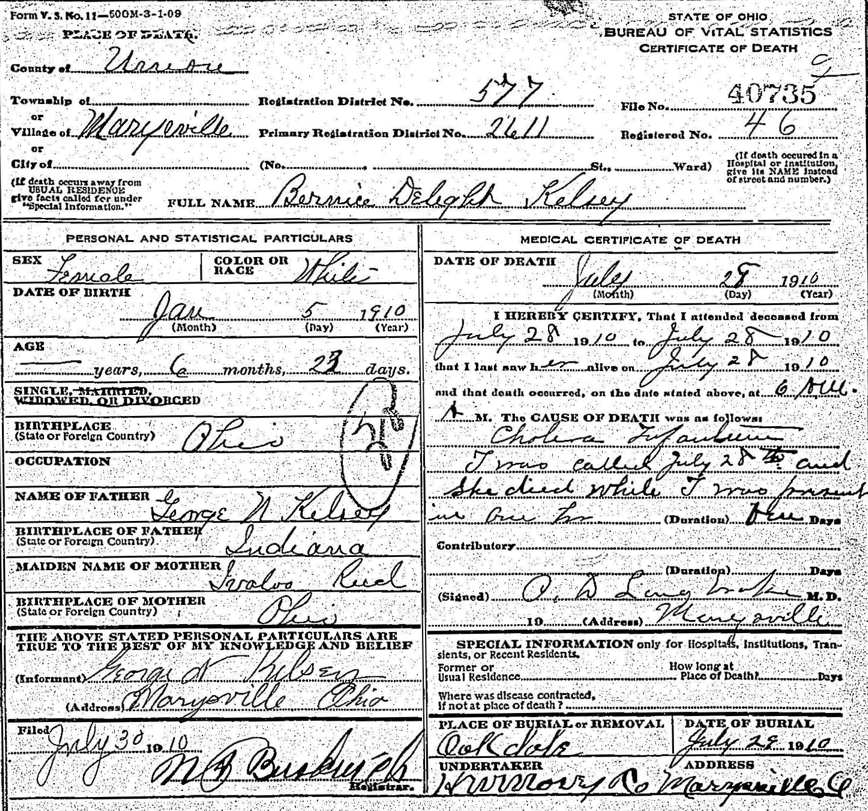 Form V. S. No. 11—500M-3-1-09
PLACE OF DEATH.
STATE OF OHIO
BUREAU OF VITAL STATISTICS
CERTIFICATE OF DEATH
County of Union
Township of
or
Village of Marysville
or
City of
Registration District No. 577
Primary Registration District No. 2611
(No. St., Ward)
File No. 40735
Registered No. 46
(If death occured in a
Hospital or institution,
give its NAME instead
of street and number.)
(If death occurs away from
USUAL RESIDENCE
give facts called for under
"Special Information."
FULL NAME Bernice Delight Kelsey
PERSONAL AND STATISTICAL PARTICULARS
SEX Female
COLOR OR RACE White
DATE OF BIRTH
Jan 5 1910
(Month) (Day) (Year)
AGE
years, 6 months, 23 days.
SINGLE, MARRIED,
WIDOWED, OR DIVORCED
BIRTHPLACE
(State or Foreign Country) Ohio
OCCUPATION
NAME OF FATHER George N Kelsey
BIRTHPLACE OF FATHER
(State or Foreign Country) Indiana
MAIDEN NAME OF MOTHER Reed
BIRTHPLACE OF MOTHER
(State or Foreign Country) Ohio
THE ABOVE STATED PERSONAL PARTICULARS ARE
TRUE TO THE BEST OF MY KNOWLEDGE AND BELIEF
(Informant) George N Kelsey
(Address) Marysville Ohio
Filed
July 30 1910
Registrar.
MEDICAL CERTIFICATE OF DEATH
DATE OF DEATH
July 28 1910
(Month) (Day) (Year)
I HEREBY CERTIFY, That I attended deceased from
July 28 1910 to July 28 1910
that I last saw her alive on July 28 1910
and that death occurred, on the date stated above, at 6 A.M.
A M. The CAUSE OF DEATH was as follows:
Cholera Infantum
I was called July 28th and
she died while I was present
in one hr (Duration) Days
Contributory
(Duration) Days
(Signed) M.D.
19 (Address) Marysville
SPECIAL INFORMATION only for Hospitals, Institutions, Tran-
sients, or Recent Residents.
Former or
Usual Residence
How long at
Place of Death? Days
Where was disease contracted,
if not at place of death?
PLACE OF BURIAL or REMOVAL
Oakdale
DATE OF BURIAL
July 29 1910
UNDERTAKER
ADDRESS
Marysville O